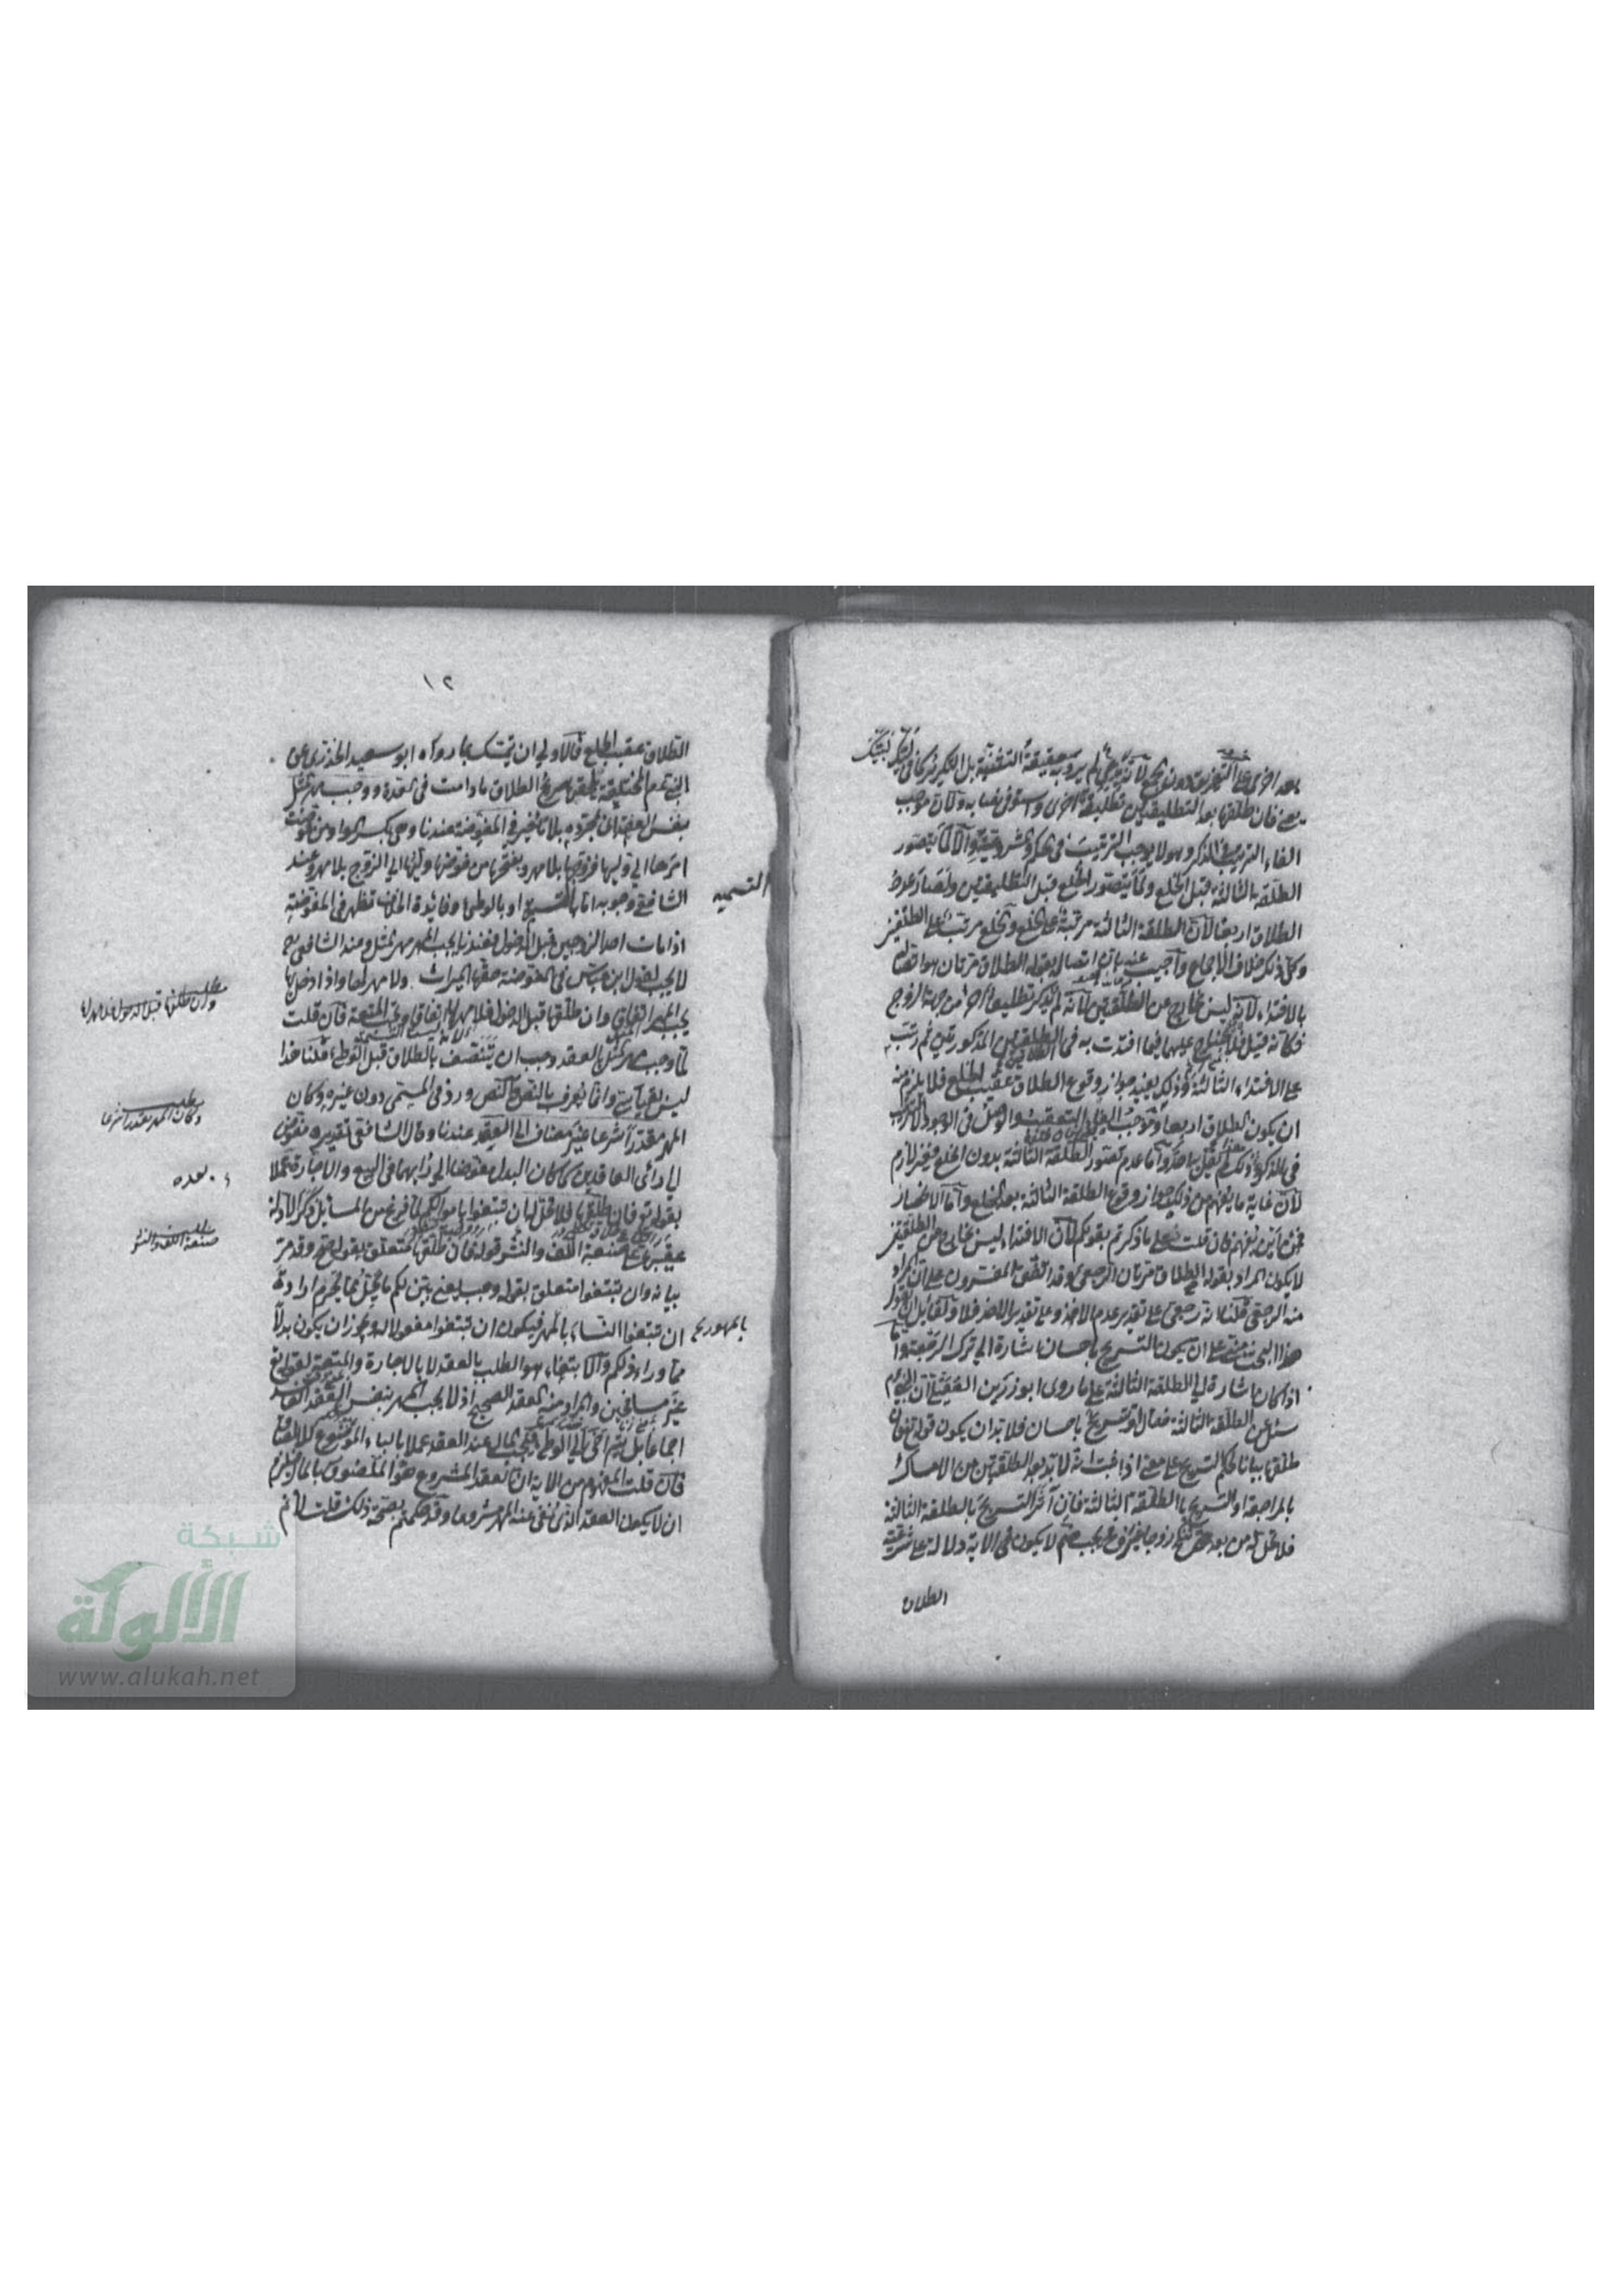 بعد اخرى على التفريق دون الجمع لانه لم يرد به حقيقة التثنية بل التكرير كما في لبيك
يعني فان طلقها بعد التطليقتين تطليقة اخرى واستوفى نصابه وكان موجب
الفاء الترتيب في الذكر وهو لا يوجب الترتيب في الحكم والمشروعية والا لما يتصور
الطلقة الثالثة قبل الخلع ولما يتصور الخلع قبل التطليقتين ولصار عدد
الطلاق اربعا لان الطلقة الثالثة مرتبة على الخلع والخلع مرتب على الطلقتين
وكل ذلك خلاف الاجماع واجيب عنه بان اتصاله بقوله الطلاق مرتان هو اتصاله
بالافتداء لانه ليس بخارج عن الطلقتين لانه لم يذكر تطليقا آخر من جهة الزوج
فكانه قيل فلا جناح عليهما فيما افتدت به في الطلقتين المذكورتين ثم رتب
على الافتداء الثالثة وذلك يفيد جواز وقوع الطلاق عقيب الخلع فلا يلزم منه
ان يكون الطلاق اربعا وموجب الفاء التعقيب والوصل في الوجود لا الترتيب
في الذكر ولم يقل به احد واما عدم تصور الطلقة الثالثة بدون الخلع فغير لازم
لان غاية ما يفهم من ذلك جواز وقوع الطلقة الثالثة بعد الخلع واما الانحصار
فمن اين يفهم فان قلت فعلى ما ذكرتم بقولكم لان الافتداء ليس بخارج عن الطلقتين
لا يكون المراد بقوله تع الطلاق مرتان الرجعي وقد اتفق المفسرون على ان المراد
منه الرجعي قلنا انه رجعي على تقدير عدم الاخذ وعلى تقدير الاخذ فلا ولقائل ان يقول
هذا البحث مبني على ان يكون التسريح باحسان اشارة الى ترك الرجعة واما
اذا كان اشارة الى الطلقة الثالثة على ما روى ابو رزين العقيلي ان النبي عم
سئل عن الطلقة الثالثة فقال او تسريح باحسان فلا بد ان يكون قوله تع فان
طلقها بيانا لحكم التسريح على معنى اذا ثبت انه لا بد بعد الطلقتين من الامساك
بالمراجعة او التسريح بالطلقة الثالثة فان آثر التسريح بالطلقة الثالثة
فلا تحل له من بعد حتى تنكح زوجا غيره فح لا يكون في الاية دلالة على شرعية
الطلاق
١٢
الطلاق عقيب الخلع فالاولى ان يتمسك بما رواه ابو سعيد الخدري عن
النبي عم المختلعة يلحقها صريح الطلاق ما دامت في العدة ووجب مهر المثل
بنفس العقد اى بمجرده بلا تاخير في المفوضة عندنا وهي بكسر الواو من فوضت
امرها الى وليها فزوجها بلا مهر وبفتحها من فوضها وليها الى الزوج بلا مهر وعند
الشافعي وجوبه اما بالتسمية او بالوطئ وفائدة الخلاف تظهر في المفوضة
التسمية
اذا مات احد الزوجين قبل الدخول فعندنا يجب المهر مهر المثل وعند الشافعي رح
لا يجب لقول ابن عباس في المفوضة حقها الميراث ولا مهر لها واذا دخل بها
يجب المهر اتفاقا وان طلقها قبل الدخول فلا مهر لها اتفاقا وتجب المتعة فان قلت
مطلب وان طلقها قبل الدخول فلا مهر لها
لما وجب مهر المثل بالعقد وجب ان يتنصف بالطلاق قبل الوطئ قلنا هذا
ليس بقياسي وانما يعرف بالنص والنص ورد في المسمى دون غيره وكان
المهر مقدرا شرعا غير مضاف الى العبد عندنا وقال الشافعي تقديره مفوض
مطلب وكان المهر مقدرا شرعا
الى رائ العاقدين كما كان البدل مفوضا الى رايهما في البيع والاجارة عملا
بقوله تع فان طلقها فلا تحل له ان تبتغوا باموالكم لما فرغ من المسائل ذكر الادلة
عقيبها على صنعة اللف والنشر قوله فان طلقها متعلق بقوله صح وقد مر
مطلب صنعة اللف والنشر
بيانه وان تبتغوا متعلق بقوله وجب يعني بين لكم ما يحل مما يحرم ارادة
ان تبتغوا النساء بالمهر فيكون ان تبتغوا مفعولا له ويجوز ان يكون بدلا
بالمهور
مما وراء ذلكم والابتغاء هو الطلب بالعقد لا بالاجارة والمتعة لقوله تع
غير مسافحين والمراد منه العقد الصحيح اذ لا يجب المهر بنفس العقد الفاسد
اجماعا بل يتراخى الى الوطئ فيجب المال عند العقد عملا بالباء الموضوع للالصاق
فان قلت المفهوم من الاية ان العقد المشروع هو الملصق بالمال فيلزم
ان لا يكون العقد الذي نفي عنه المهر مشروعا وقد حكمتم بصحة ذلك قلت لا ثم
شبكة
الألوكة
www.alukah.net